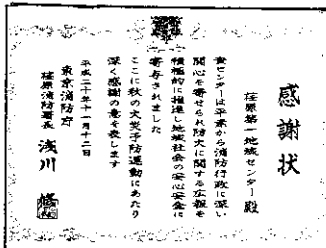 感謝状
荏原第一地域センター殿
貴センターは平素から消防行政に深い
関心を寄せられ防火に関する広報を
積極的に推進し地域社会の安心安全に
寄与されました
ここに秋の火災予防運動にあたり
深く感謝の意を表します
平成二十年十一月十二日
東京消防庁
荏原消防署長 浅川